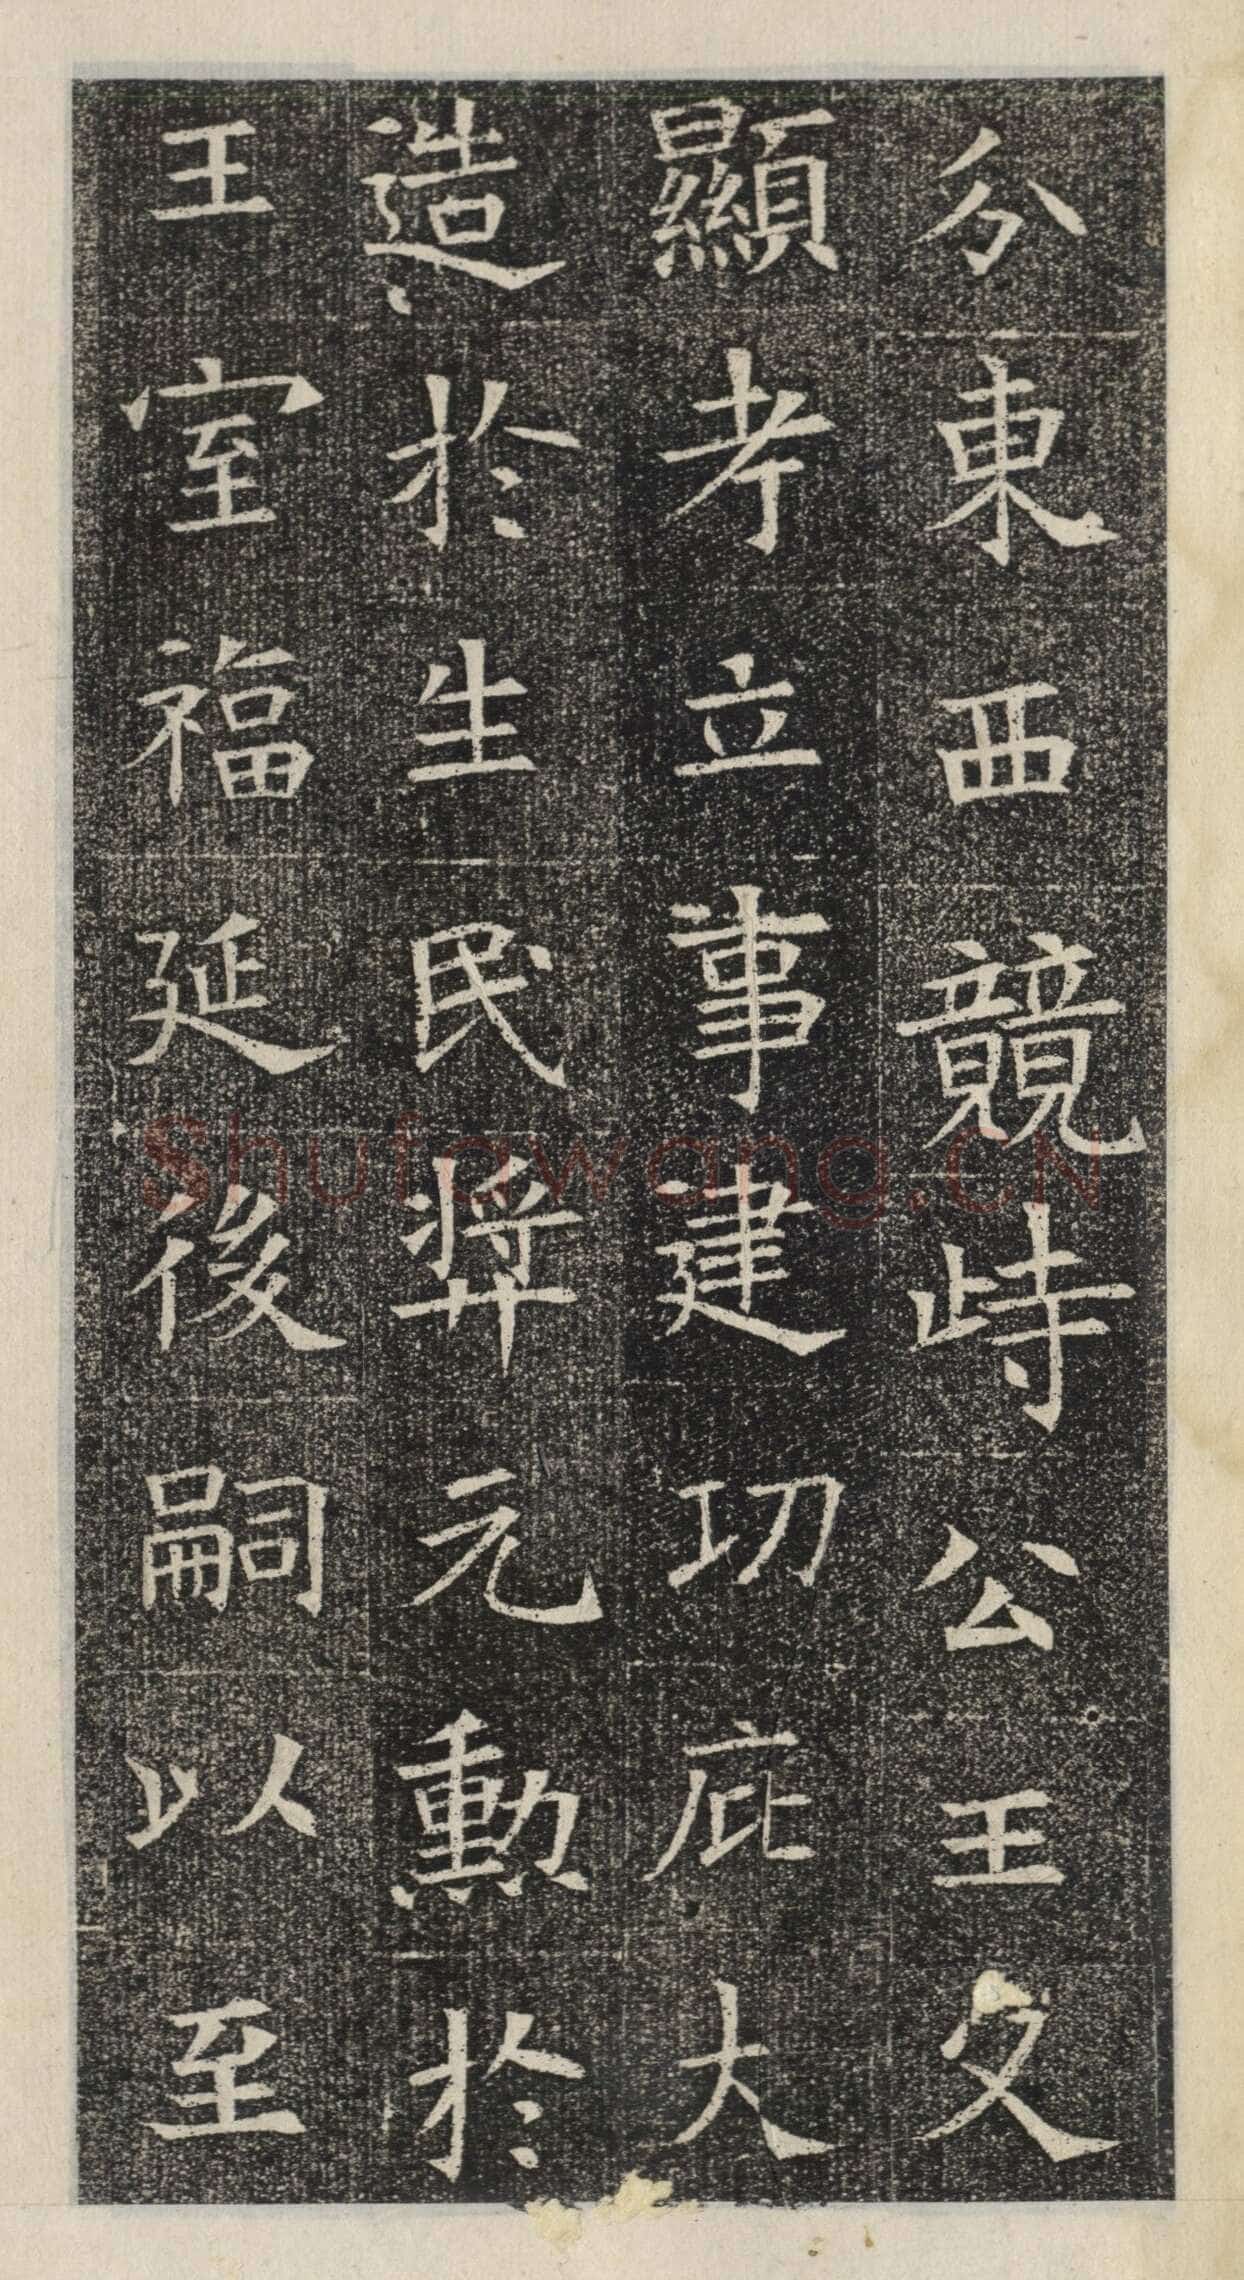 分東西競峙公王父
顯考立事建功庇大
造於生民奬元勳於
王室福延後嗣以至
Shufawang.CN